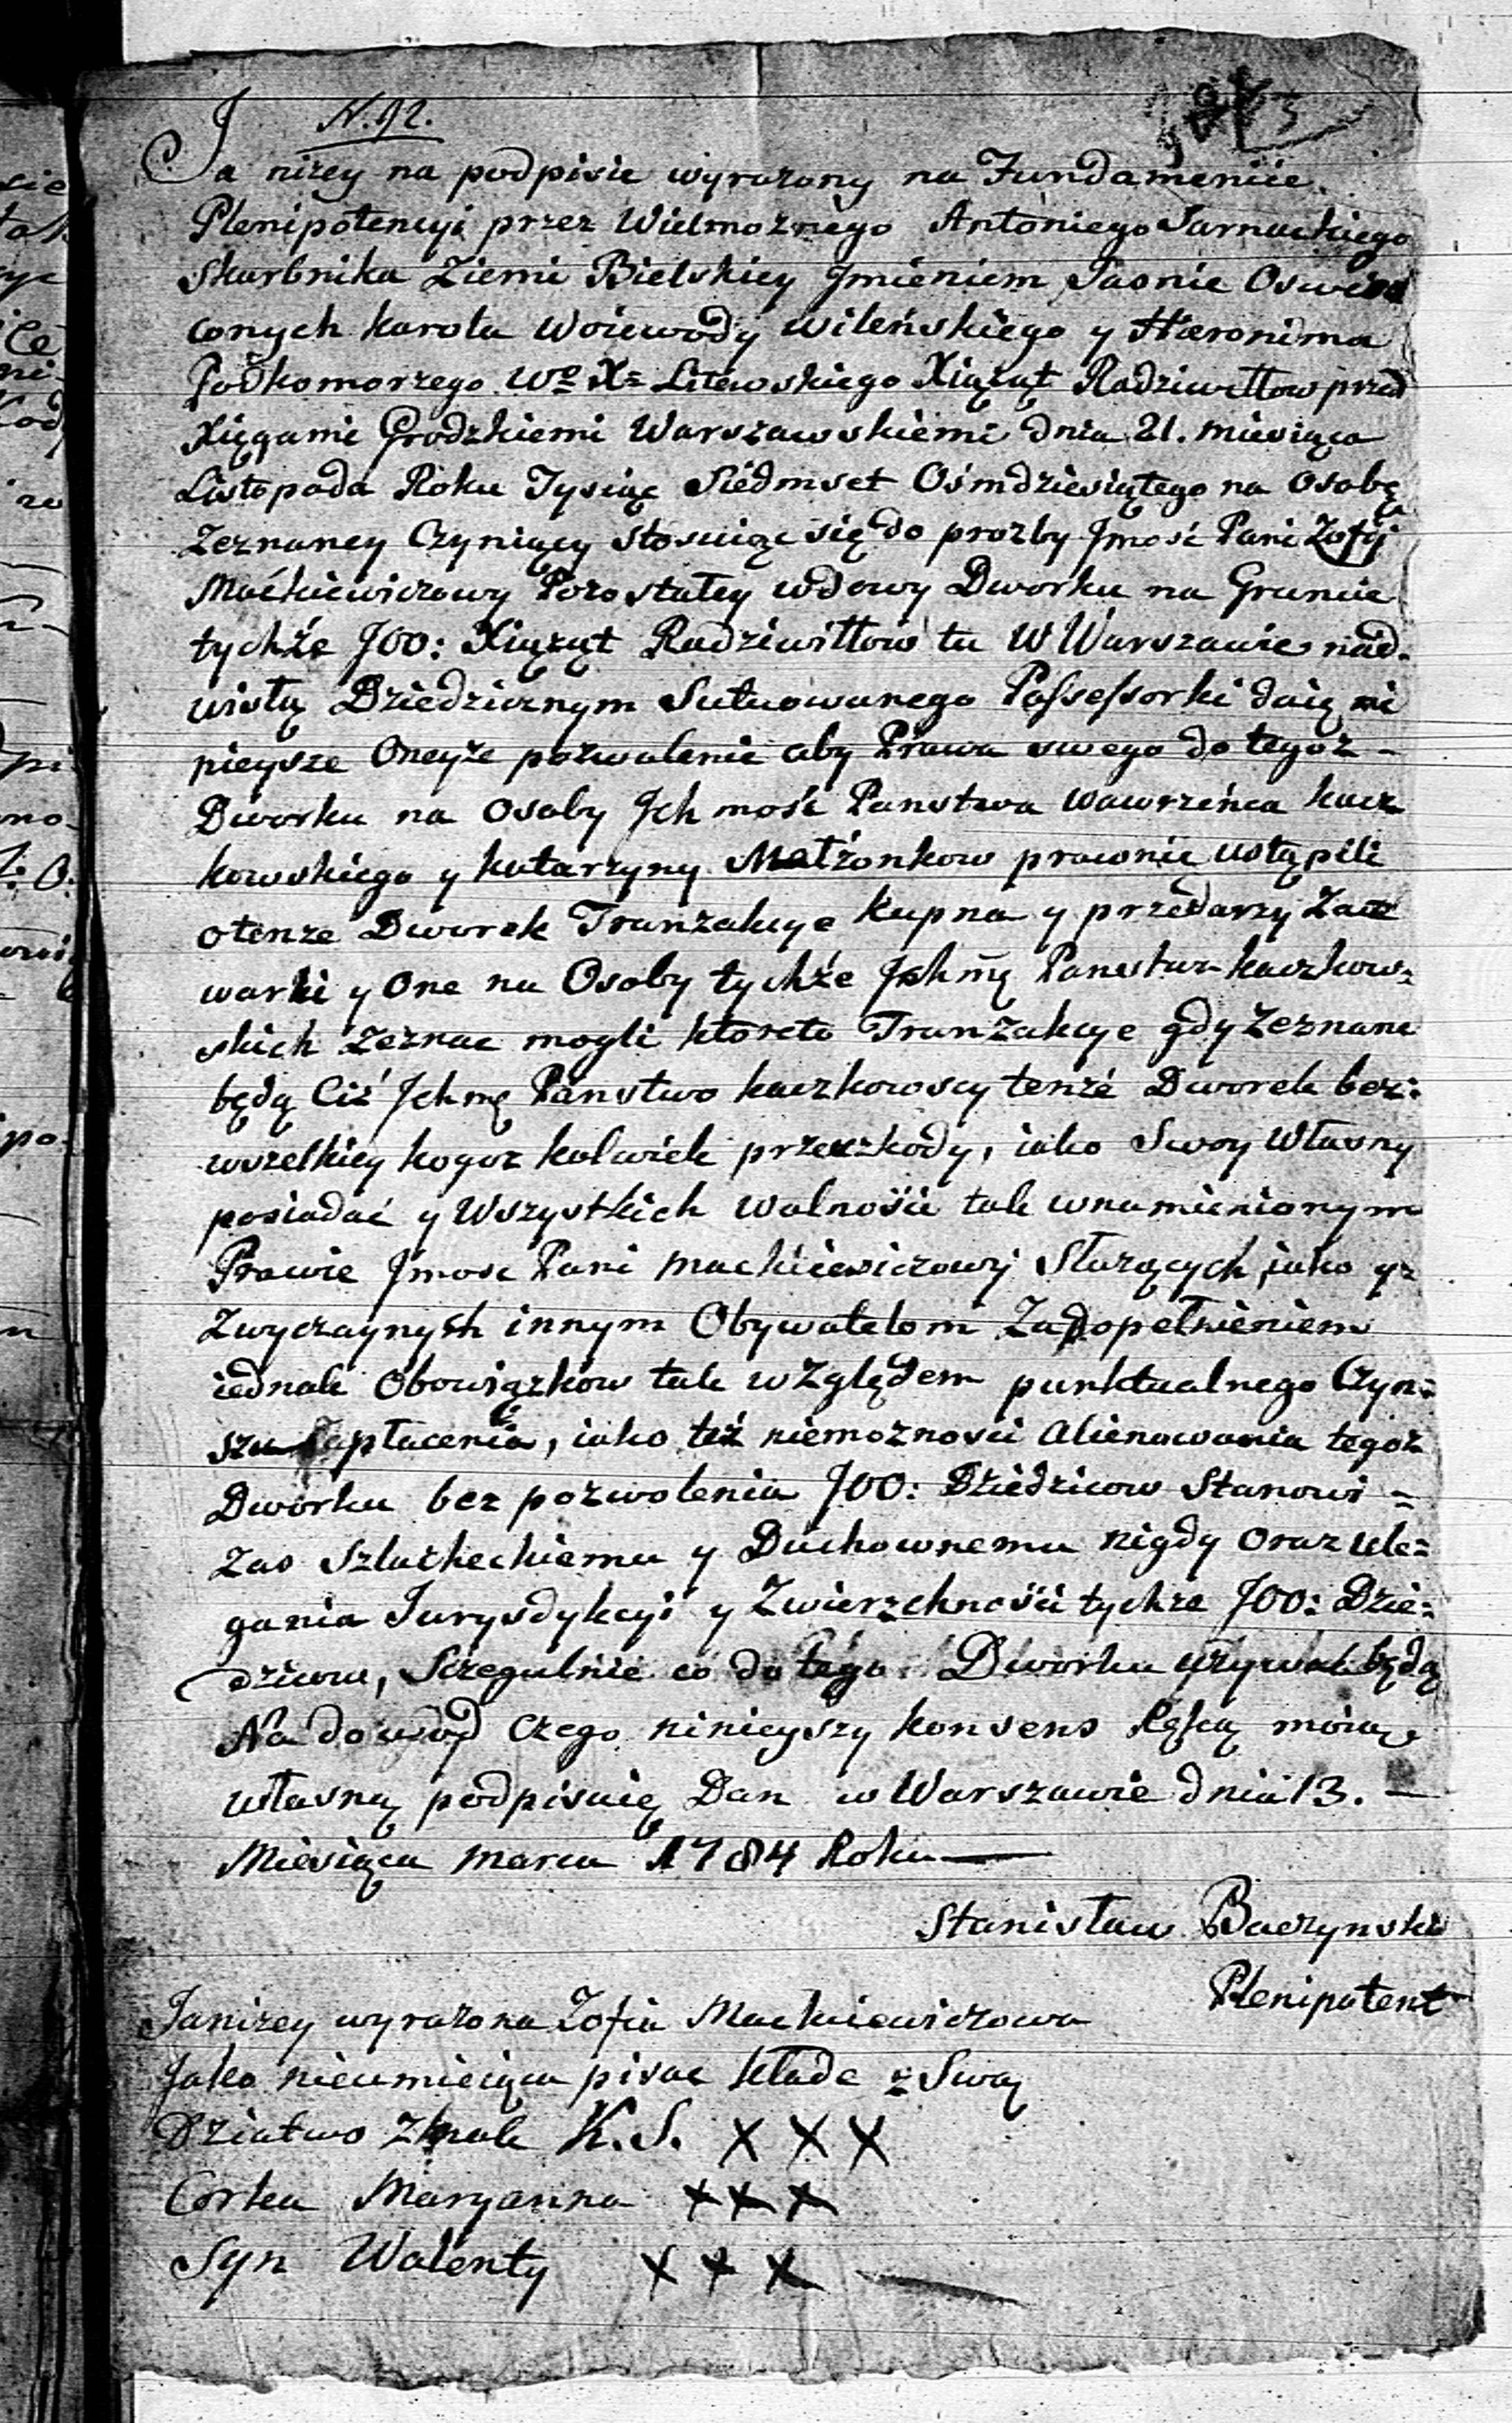 N. 92.
Ja niżey na podpisie wyrażony na Fundamencie
Plenipotencyi przez Wielmożnego Antoniego Sarnackiego
Skarbnika Ziemi Bielskiey Jmieniem Jasnie Oswie
conych Karola Woiewody Wileńskiego y Hieronima
Podkomorzego Wo Xa Litewskiego Xiążąt Radziwiłłow przed
Xięgami Grodzkiemi Warszawskiemi dnia 21. miesiąca
Listopada Roku Tysiąc Siedmset Ośmdziesiątego na Osobę
Zeznaney Czyniący stosuiąc się do prozby Jmość Pani Zofij
Maćkiewiczowy Pozostałey wdowy Dworku na Gruncie
tychże JOO: Xiążąt Radziwiłłow tu w Warszawie nad
wisłą Dziedzicznym Sutuowanego Possessorki daię ni
nieysze Oneyże pozwolenie aby Prawa swego do tegoz -
Dworku na Osoby Jch mość Panstwa Wawrzeńca Kacz
kowskiego y Katarzyny Małżonkow prawnie ustąpili
o tenze Dworek Tranzakcye kupna y przedarzy Zae
warli y One na Osoby tychże Jchmę Panstwa Kaczkow=
skich Zeznac mogli które to Tranzakcye gdy Zeznane
będą Ciż Jchmę Państwo Kaczkowscy tenże Dworek bez:
wszelkiey kogoz kolwiek przeszkody, iako Swoy Własny
posiadać y Wszystkich Wolnośći tak wnamienionym
Prawie Jmosc Pani Mackiewiczowy Służących, iako y=
Zwyczaynych innym Obywatelom Zadopełnieniem
iednak Obowiązkow tak względem punktualnego Czyn=
szu Zapłacenia, iako też niemoznosci alienowania tegoz
Dworku bez pozwolenia JOO: Dziedzicow Stanowi =
zas Szlacheckiemu y Duchownemu nigdy oraz ule=
gania Jurysdykcyi y Zwierzchnośći tychze JOO: Dzie=
dzicow, Sczegulnie co do tego Dworku używać będą
Na dowod czego ninieyszy konsens Ręką moią
własną podpisuię Dan w Warszawie dnia 13. -
Miesiąca Marca 1784 Roku
Stanisław Baczynski
Plenipotent
Ja niżey wyrażona Zofia Mackiewiczowa
Jako nieumieiąca pisac kładę z Swą
Dziatwo Znak K. S. X X X
Corka Maryanna X X X
Syn Walenty X X X